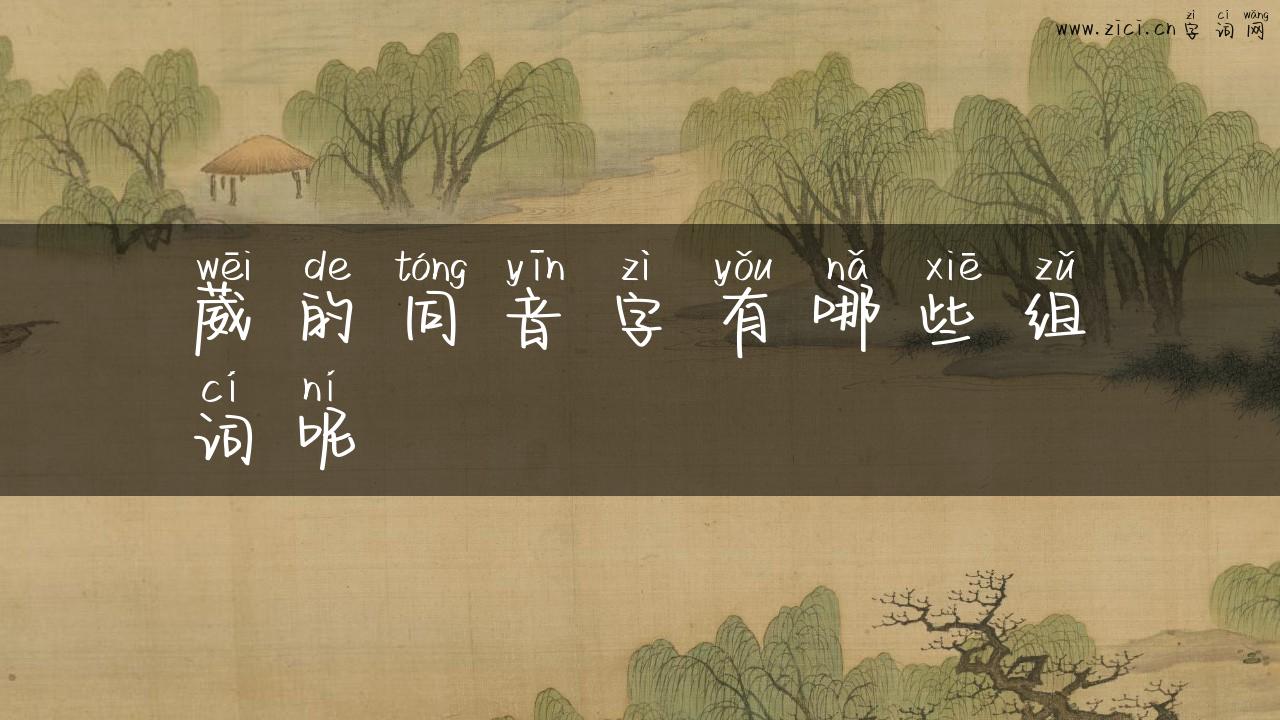 zì cí wǎng
www.zici.cn字词网
wēi de tóng yīn zì yǒu nǎ xiē zǔ
葳的同音字有哪些组
cí ní
词呢